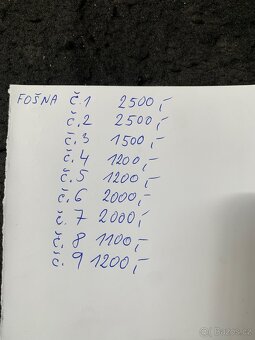 FOŠNA č.1 2500,-
č.2 2500,-
č.3 1500,-
č.4 1200,-
č.5 1200,-
č.6 2000,-
č.7 2000,-
č.8 1100,-
č.9 1200,-
Bazos.cz